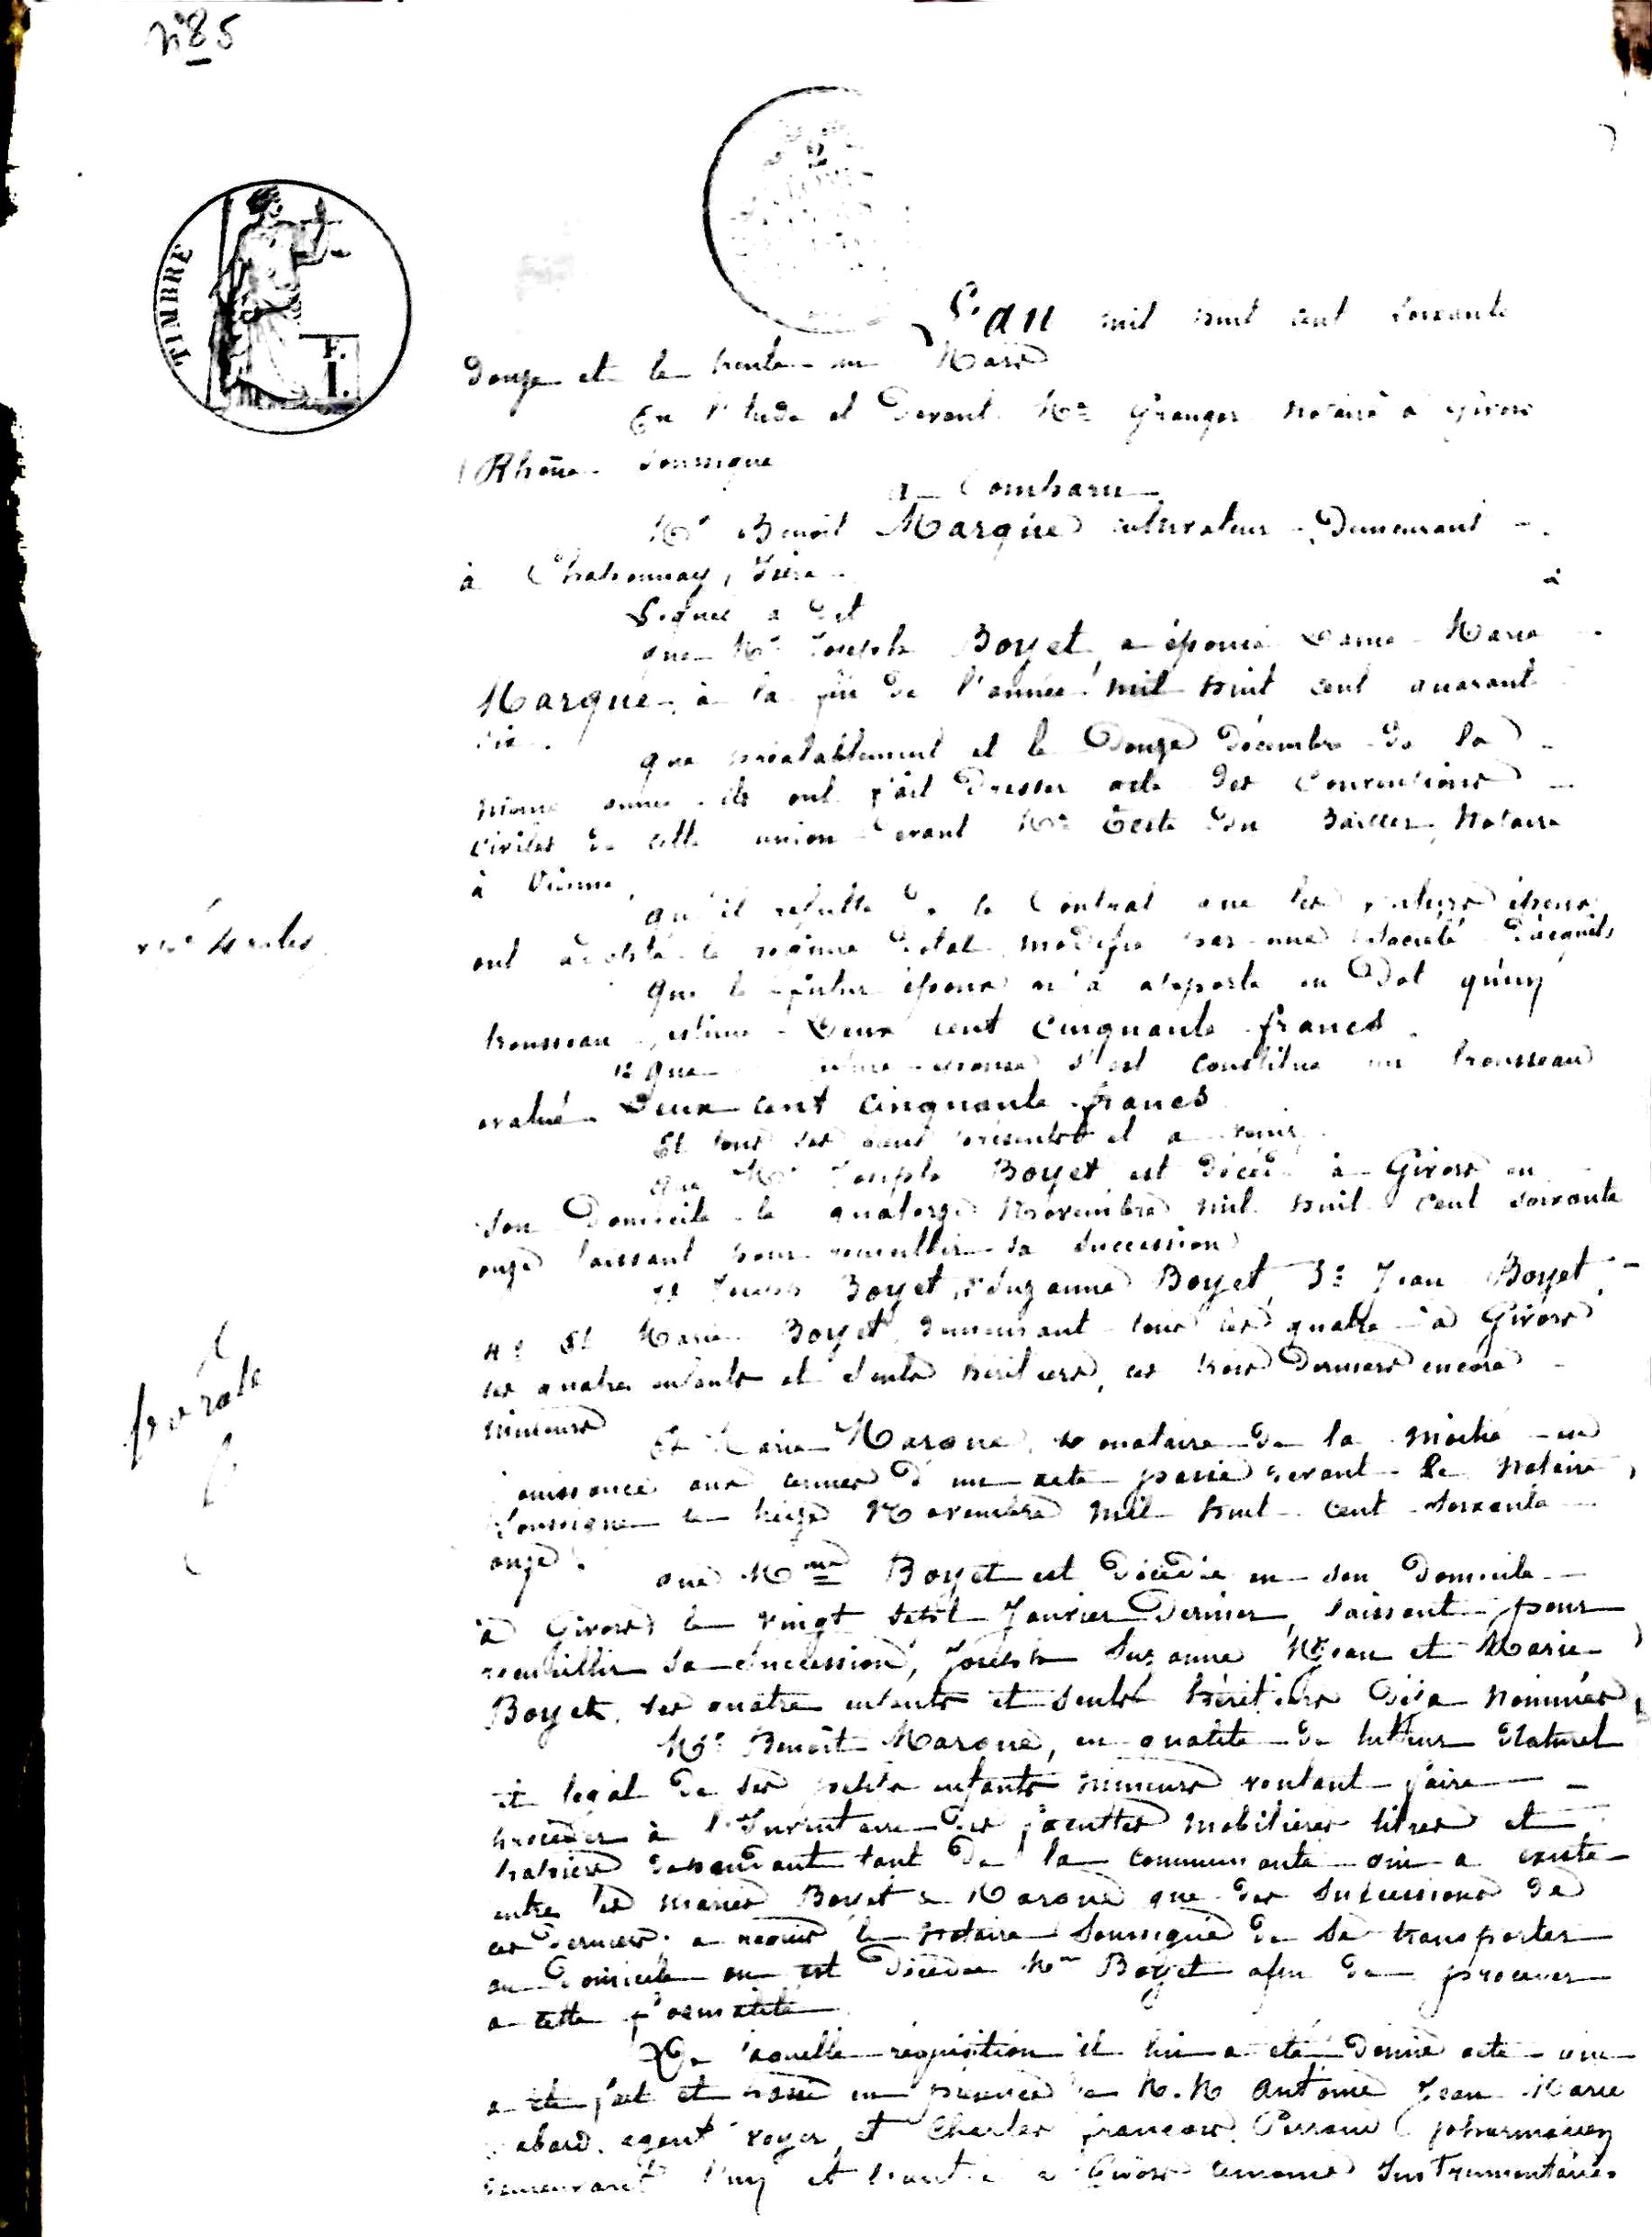 N° 85
TIMBRE
F.
I.
L'an mil huit cent soixante
douze et le trente un Mars
En l'Etude et devant Me Granger notaire à Givors
(Rhône) soussigné
a Comparu
Mr Benoit Marque cultivateur demeurant
à Chaponnay, Isère
Lequel a dit
que Mr Joseph Boyet, a épousé Dame Marie
Marque, à la fin de l'année mil huit cent quarante
six.
que préalablement et le Douze décembre de la
même année ils ont fait dresser acte des Conventions
civiles de cette union devant Me Teste du Bailler Notaire
à Vienne
qu'il résulte de ce Contrat que les futurs époux
ont adopté le régime dotal modifié par une société d'acquets
Que le futur époux n'a apporté en Dot qu'un
trousseau estimé Deux cent cinquante francs
Que future épouse s'est constitué un trousseau
évalué Deux cent cinquante francs
Et tous ses biens présents et a venir
que Mr Joseph Boyet est décédé à Givors en
son Domicile le quatorze Novembre mil huit cent soixante
onze laissant pour recueillir sa succession
1° Joseph Boyet, 2° Suzanne Boyet, 3° Jean Boyet,
4° Et Marie Boyet demeurant tous les quatre à Givors
ses quatre enfants et seuls héritiers, les trois derniers encore
mineurs
Et Marie Marque, donataire de la moitié en
jouissance aux termes d'un acte passé devant le Notaire
soussigné le treize Novembre mil huit cent soixante
onze.
que Mme Boyet est décédée en son Domicile
à Givors le vingt sept Janvier Dernier, laissant pour
recueillir sa succession, Joseph Suzanne Jean et Marie
Boyet, ses quatre enfants et seuls héritiers déja nommés
Mr Benoît Marque, en qualité de tuteur Naturel
et légal de ses petits enfants mineurs voulant faire
procéder à l'Inventaire des facultés mobilières titres et
papiers dépendant tant de la communauté qui a existé
entre les mariés Boyet & Marque que des successions de
ces derniers a requis le notaire soussigné de se transporter
au Domicile ou est décédée Mme Boyet afin de procéder
a cette formalité
De laquelle réquisition il lui a été donné acte qui
a été fait et passé en présence de M.M Antoine Jean Marie
agent voyer, et Charles françois pharmacien
demeurant l'un et l'autre a Givors témoins Instrumentaires